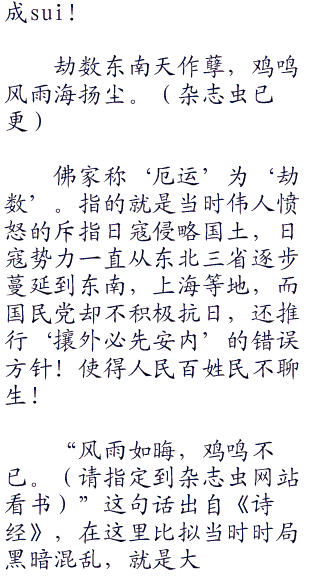 成sui！
劫数东南天作孽，鸡鸣
风雨海扬尘。（杂志虫已
更）
佛家称‘厄运’为‘劫
数’。指的就是当时伟人愤
怒的斥指日寇侵略国土，日
寇势力一直从东北三省逐步
蔓延到东南，上海等地，而
国民党却不积极抗日，还推
行‘攘外必先安内’的错误
方针！使得人民百姓民不聊
生！
“风雨如晦，鸡鸣不
已。（请指定到杂志虫网站
看书）”这句话出自《诗
经》，在这里比拟当时时局
黑暗混乱，就是大